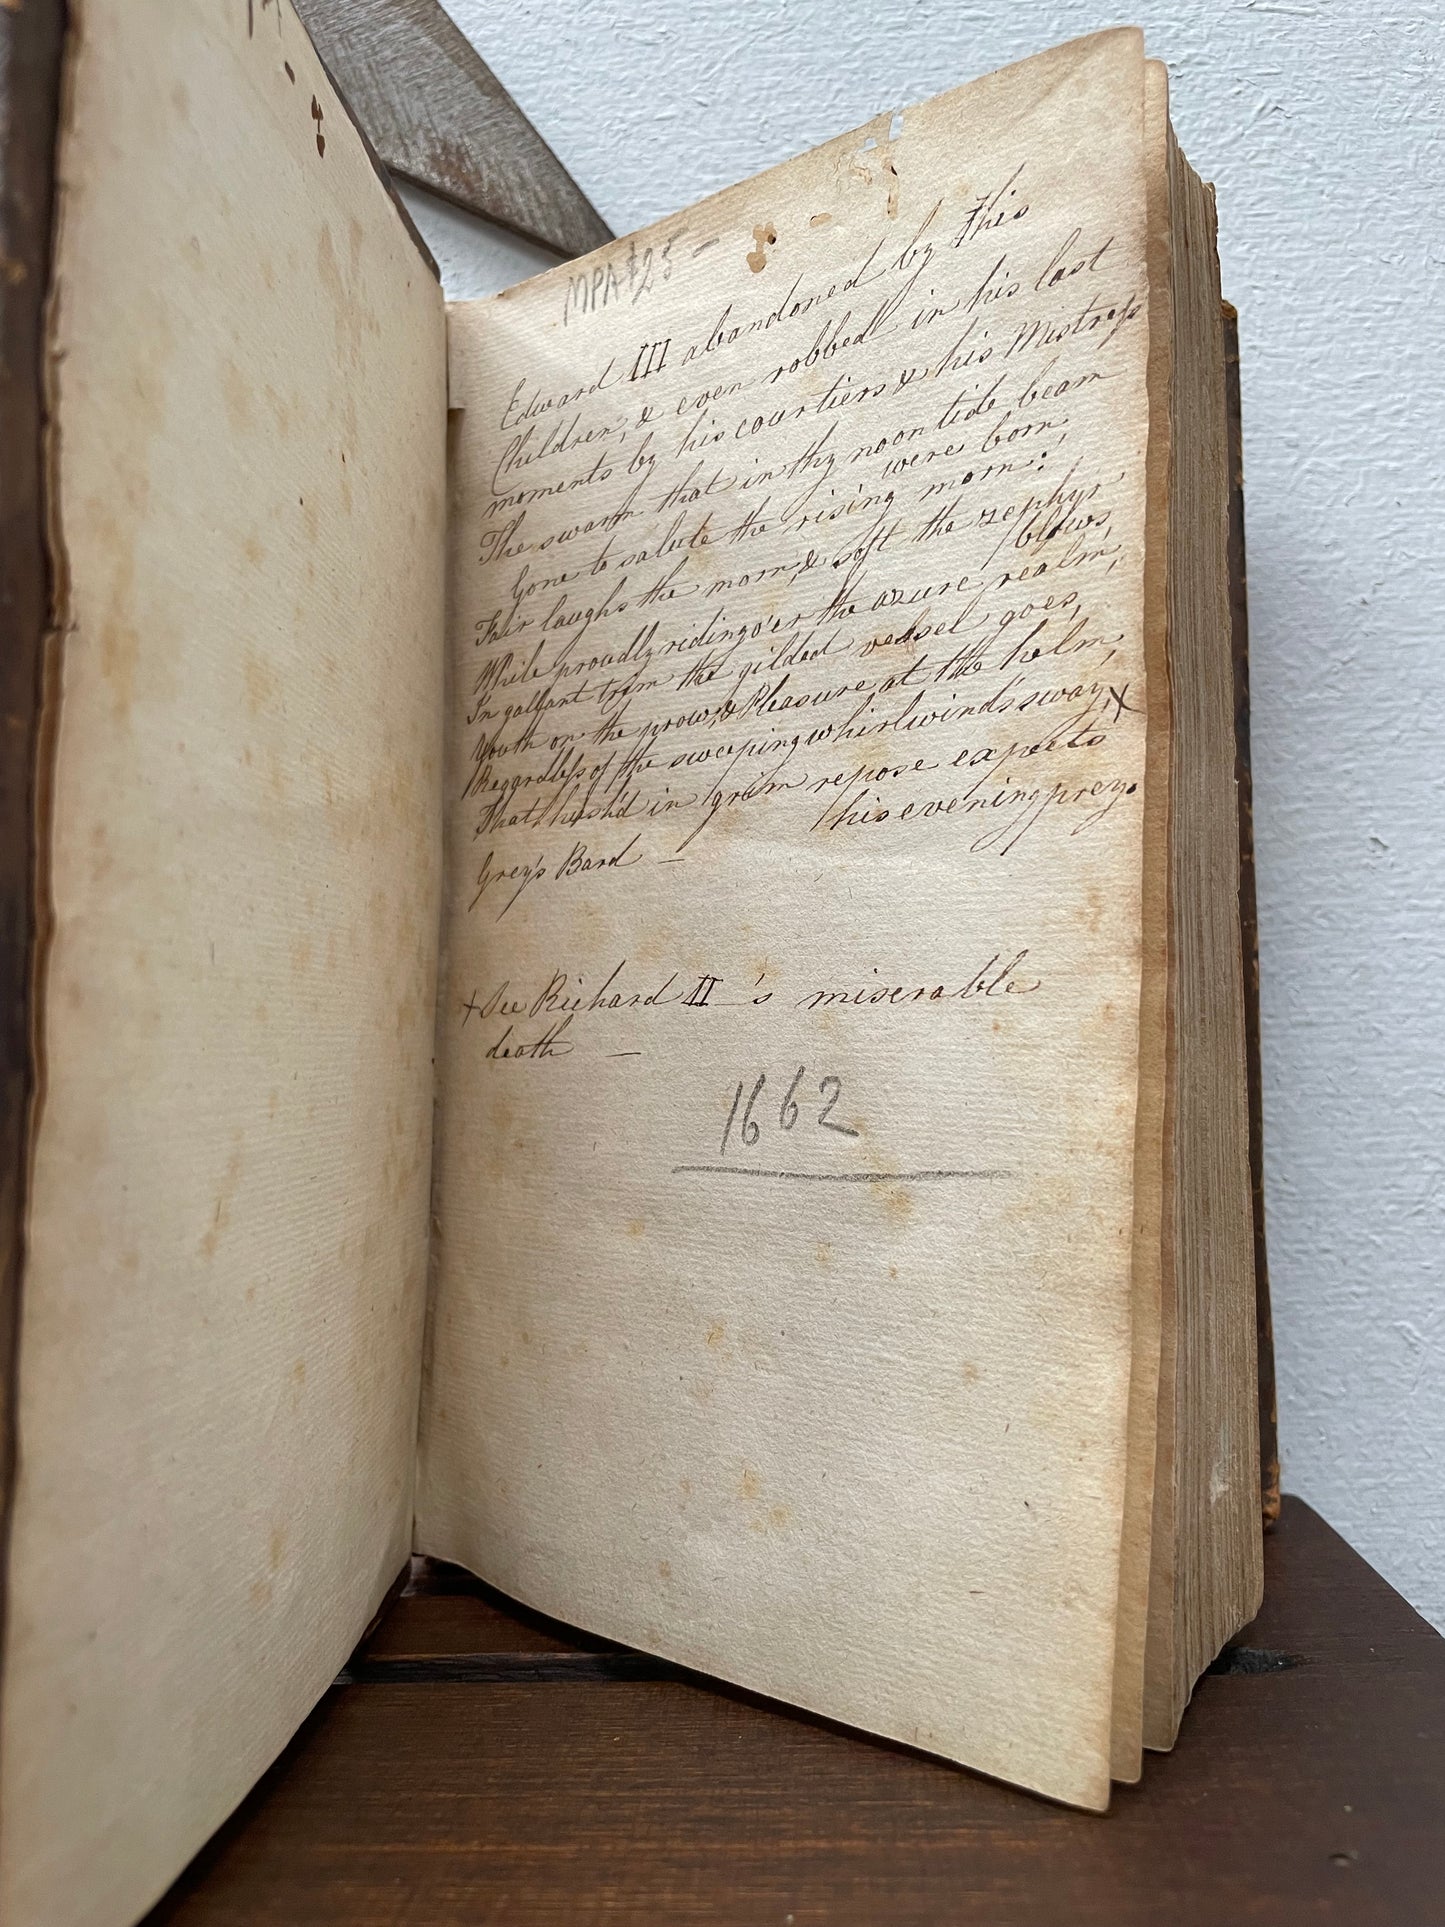 MPA $25-
Edward III abandoned by this
Children, & even robbed in his last
moments by his courtiers & his Mistress
The swarm that in thy noontide beam
were born,
Gone to salute the rising morn:
Fair laughs the morn, & soft the zephyr
blows,
While proudly riding o'er the azure realm,
In gallant trim the gilded vessel goes,
Youth on the prow, & Pleasure at the helm,
Regardless of the sweeping whirlwind's sway, x
That, hush'd in grim repose expects
his evening prey.
Grey's Bard —
x See Richard II's miserable
death —
1662